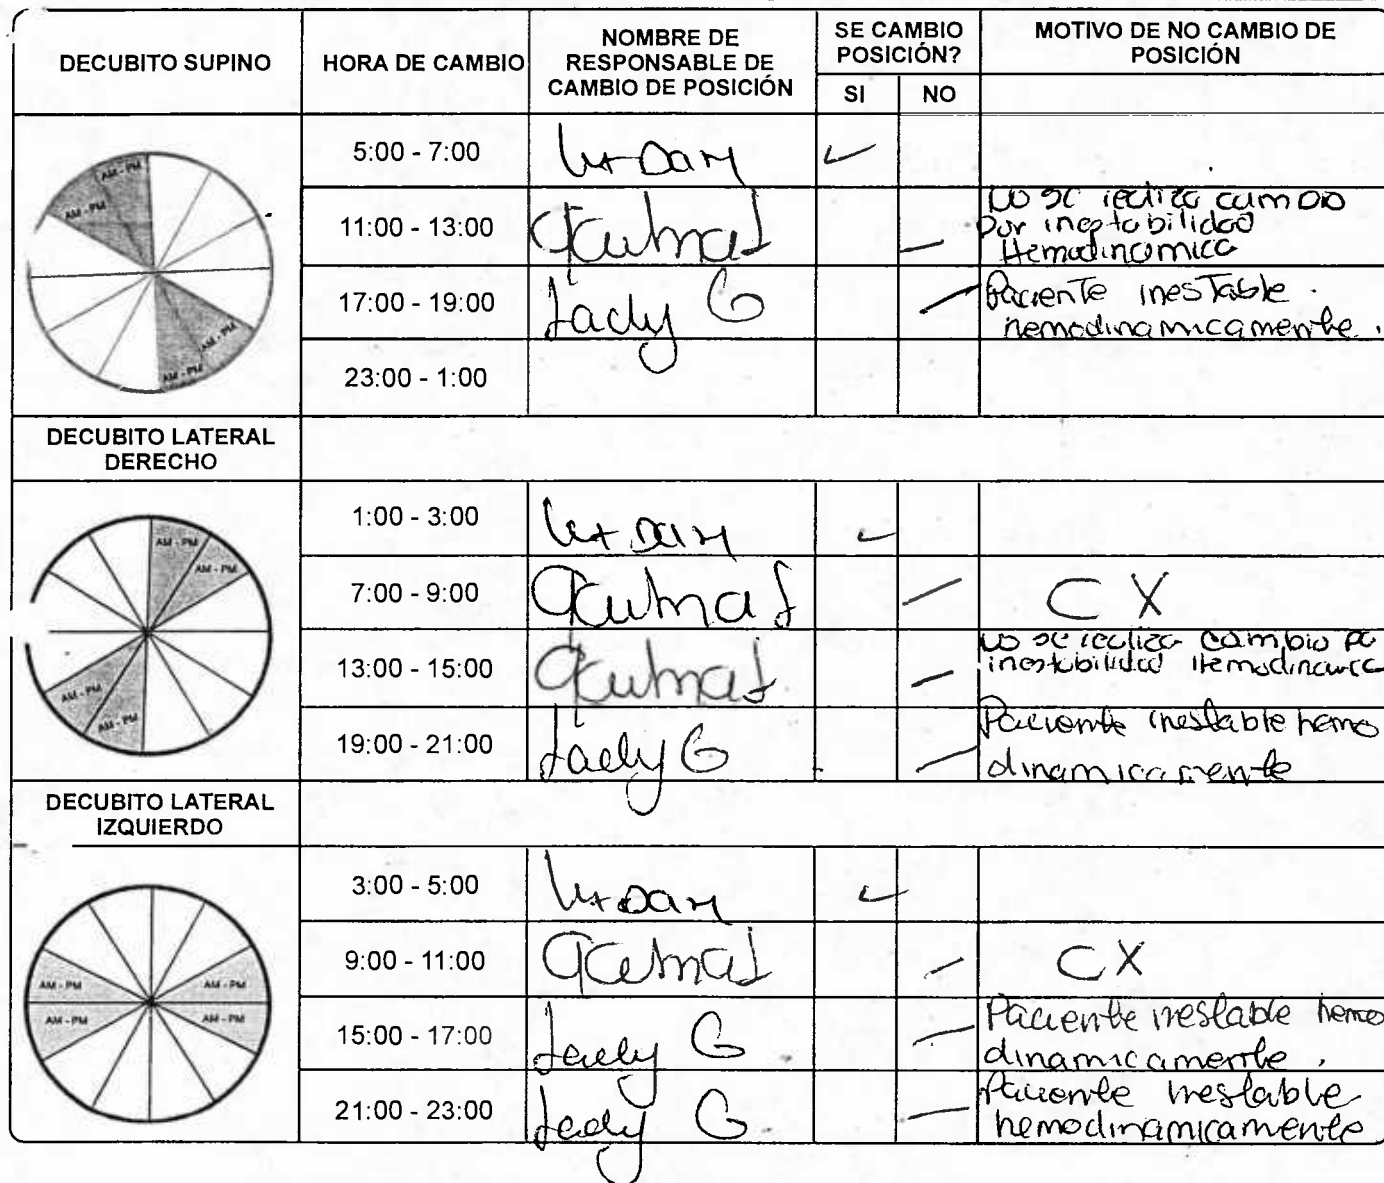 DECUBITO SUPINO HORA DE CAMBIO NOMBRE DE RESPONSABLE DE CAMBIO DE POSICIÓN SE CAMBIO POSICIÓN? MOTIVO DE NO CAMBIO DE POSICIÓN
SI NO
AM - PM
AM - PM
AM - PM
AM - PM
5:00 - 7:00
11:00 - 13:00 No se realiza cambio
por inestabilidad
Hemodinamica
17:00 - 19:00 Lady G Paciente inestable.
hemodinamicamente.
23:00 - 1:00
DECUBITO LATERAL DERECHO
AM - PM
AM - PM
AM - PM
AM - PM
1:00 - 3:00
7:00 - 9:00 CX
13:00 - 15:00 No se realiza cambio po
inestabilidad Hemodinamica
19:00 - 21:00 Lady G Paciente inestable hemo
dinamicamente
DECUBITO LATERAL IZQUIERDO
AM - PM AM - PM
AM - PM AM - PM
3:00 - 5:00
9:00 - 11:00 CX
15:00 - 17:00 Lady G Paciente inestable hemo
dinamicamente.
21:00 - 23:00 Lady G Paciente inestable
hemodinamicamente